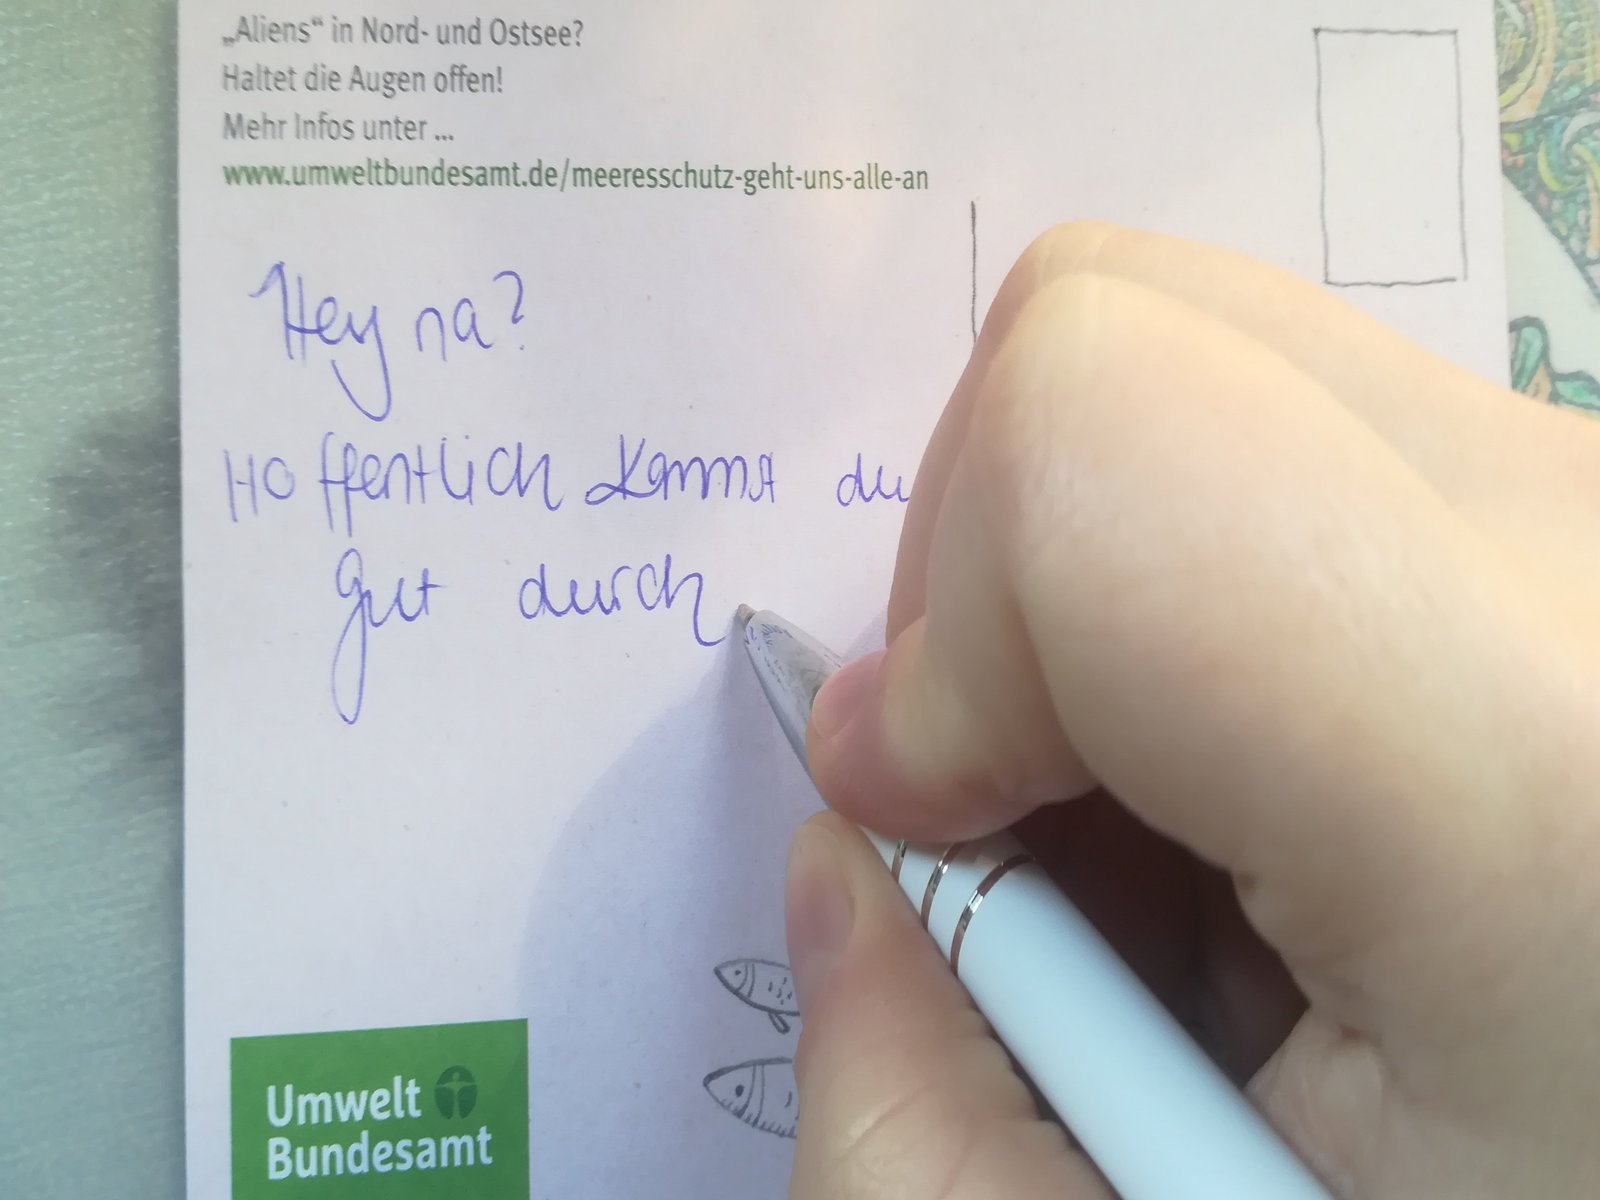 „Aliens“ in Nord- und Ostsee?
Haltet die Augen offen!
Mehr Infos unter ...
www.umweltbundesamt.de/meeresschutz-geht-uns-alle-an
Hey na?
Hoffentlich kannst du
gut durch
Umwelt
Bundesamt